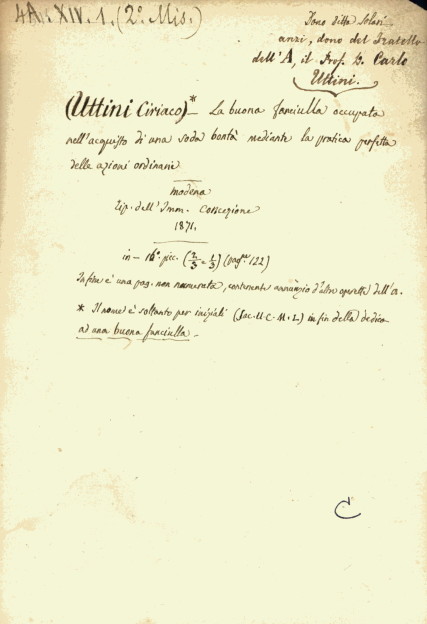 4A. XIV. 1. (2° Mis.)
Dono ditta Solari
anzi, dono del Fratello
dell'A, il Prof. D. Carlo
Uttini.
(Uttini Ciriaco)* La buona fanciulla occupata
nell'acquisto di una soda bontà mediante la pratica perfetta
delle azioni ordinarie
Modena
Tip. dell'Imm. Concezione
1871.
in - 16° picc. (pag.ne 122)
In fine è una pag. non numerata, contenente annunzio d'altre operette dell'a.
* Il nome è soltanto per iniziali (Sac. U. C. M. L.) in fin della dedica
ad una buona fanciulla -
C